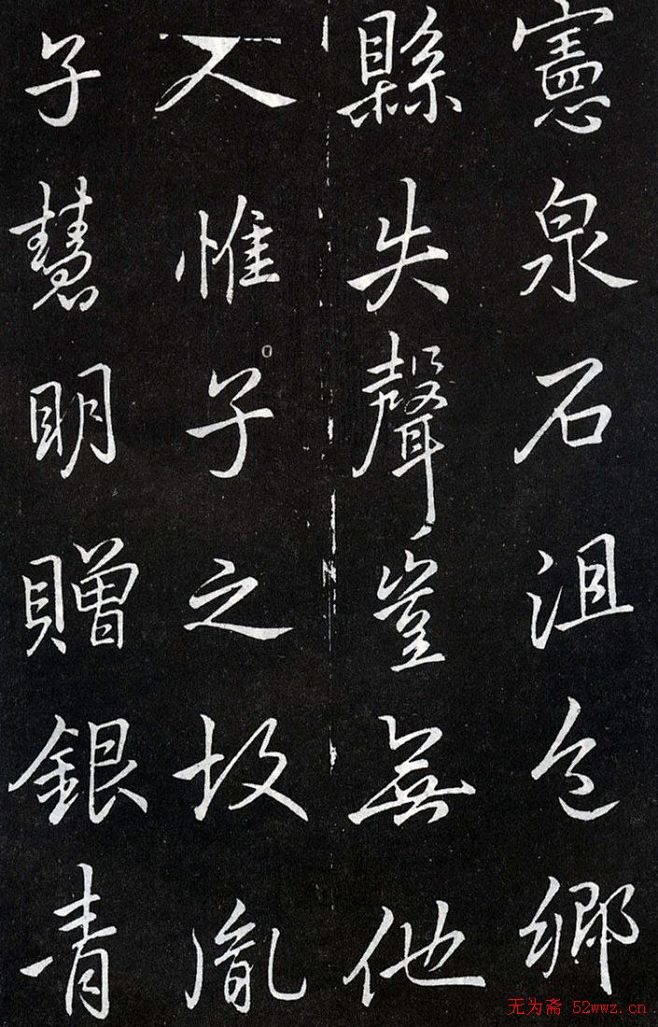 憲泉石沮色鄉
縣失聲豈無他
人惟子之故胤
子慧明贈銀青
无为斋 52wwz.cn